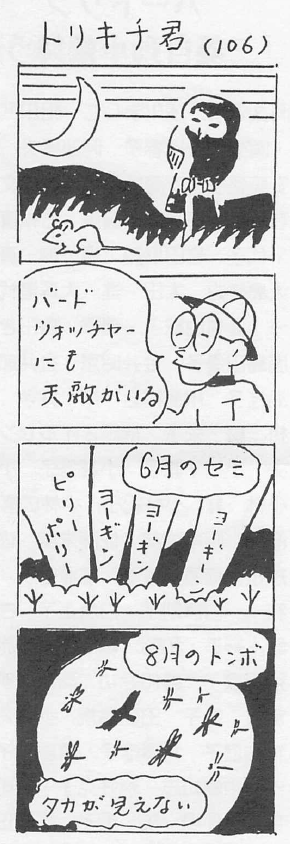 トリキチ君(106)
バード
ウォッチャー
にも
天敵がいる
T
6月のセミ
ピリー
ポリー
ヨーギン
ヨーギン
ヨーギーン
ヨーギーン
8月のトンボ
タカが見えない